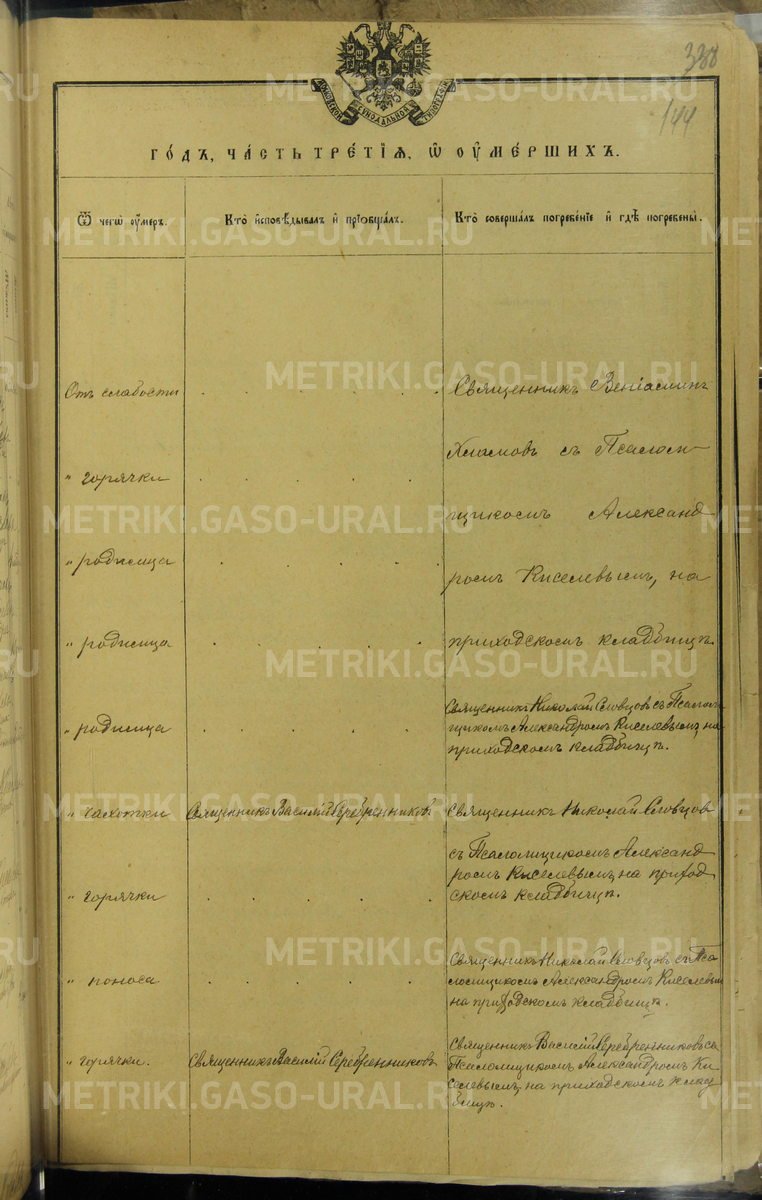 338
144
МОСКОВСКОЙ СУНОДАЛЬНОЙ ТИПОГРАФІИ
ГО́ДЪ, ЧА́СТЬ ТРЕ́ТІѦ, Ѡ҆ ОУ҆МЕ́РШИХЪ.
Ѿ чегѡ̀ оу҆́меръ.
Кто̀ и҆сповѣ́дывалъ и҆ прїѡбща́лъ.
Кто̀ соверша́лъ погребе́нїе и҆ гдѣ̀ погребены̀.
Отъ слабости
Священникъ Веніаминъ
Хламовъ съ Псалом-
" горячки
щикомъ Александ
" родимца
ромъ Киселевымъ, на
" родимца
приходскомъ кладбищѣ.
" родимца
Священникъ Николай Словцовъ съ Псалом
щикомъ Александромъ Киселевымъ, на
приходскомъ кладбищѣ.
" чахотки
Священникъ Василій Серебренниковъ
Священникъ Николай Словцов
съ Псаломщикомъ Александ
ромъ Киселевымъ, на приход
скомъ кладбищѣ.
" горячки
" поноса
Священникъ Николай Словцовъ съ Пса
ломщикомъ Александромъ Киселевым
на приходскомъ кладбищѣ.
" горячки.
Священникъ Василій Серебренниковъ
Священникъ Василій Серебренниковъ съ
Псаломщикомъ Александромъ Ки
селевымъ, на приходскомъ клад
бищѣ.
METRIKI.GASO-URAL.RU